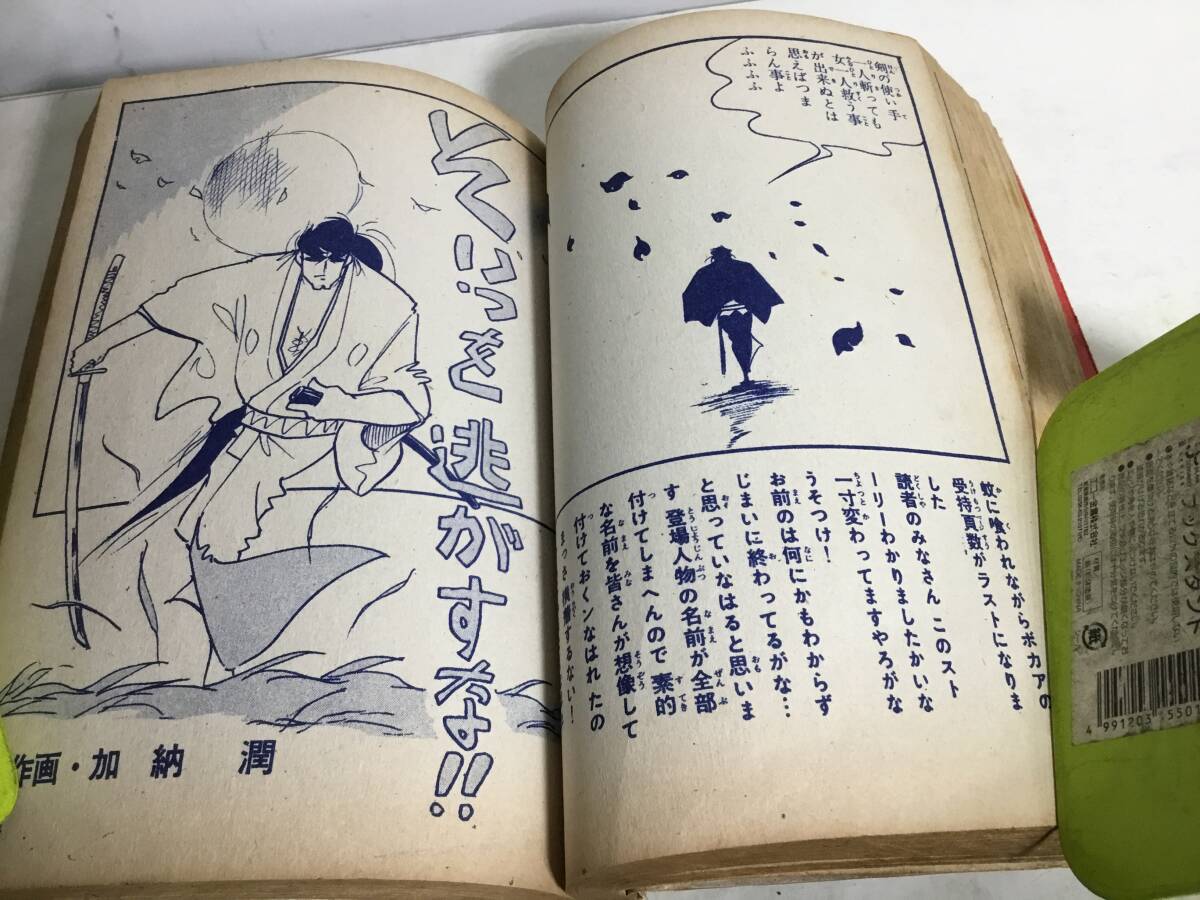 剣の使い手
一人斬っても
女一人救う事
が出来ぬとは
思えばつま
らん事よ
ふふふふ
蚊に喰われながらボカアの
受持頁数がラストになりま
した
読者のみなさん このスト
ーリーわかりましたかいな
一寸変わってますやろがな
うそつけ!
お前のは何にかもわからず
じまいに終わってるがな…
と思っていなはると思いま
す 登場人物の名前が全部
付けてしまへんので 素的
な名前を皆さんが想像して
付けておくンなはれたの
まっさ するない!
を逃がすな!!
作画・加納 潤
ブックスタンド
紙
4 991203 5501